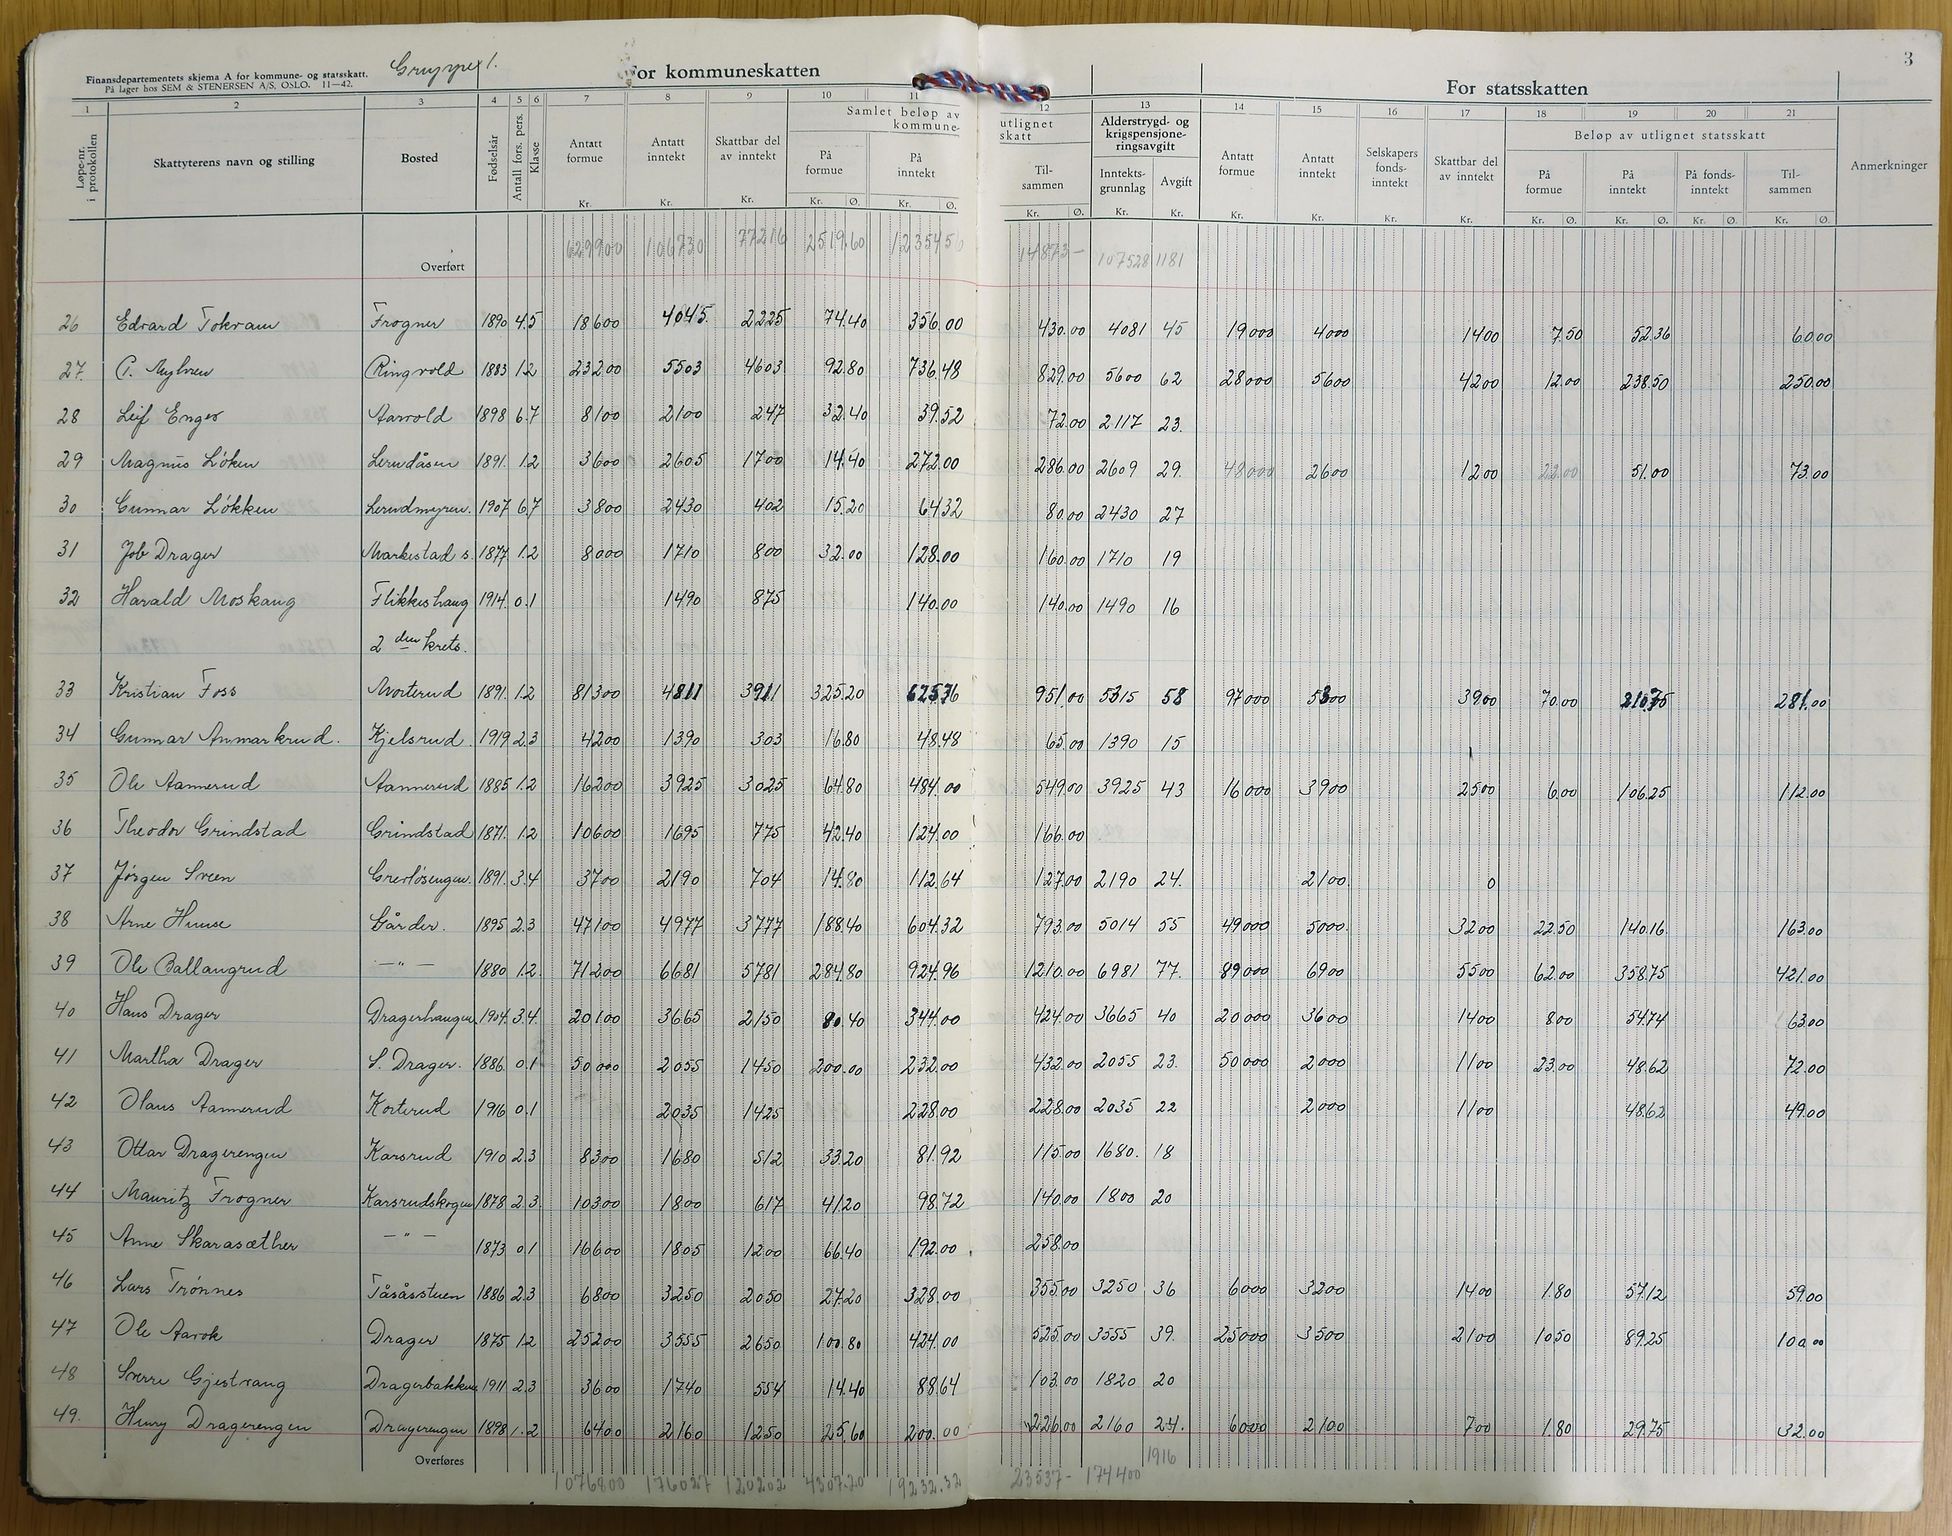 Finansdepartementets skjema A for kommune- og statsskatt. Gruppe 1. For kommuneskatten For statsskatten 3
På lager hos SEM & STENERSEN A/S, OSLO. 11—42.
1 2 3 4 5 6 7 8 9 10 11 12 13 14 15 16 17 18 19 20 21
Løpe-nr. i protokollen Skattyterens navn og stilling Bosted Fødselsår Antall fors. pers. Klasse Antatt formue Kr. Antatt inntekt Kr. Skattbar del av inntekt Kr. Samlet beløp av utlignet kommune-skatt På formue Kr. Ø. På inntekt Kr. Ø. Til-sammen Kr. Ø. Alderstrygd- og krigspensjone-ringsavgift Inntekts-grunnlag Kr. Avgift Kr. Antatt formue Kr. Antatt inntekt Kr. Selskapers fonds-inntekt Kr. Skattbar del av inntekt Kr. Beløp av utlignet statsskatt På formue Kr. Ø. På inntekt Kr. Ø. På fonds-inntekt Kr. Ø. Til-sammen Kr. Ø. Anmerkninger
Overført 629900 106730 77216 2519.60 12354.56 14873- 107528 1181
26 Edvard Tokvam Frogner 1890 4.5 18600 4045 2225 74.40 356.00 430.00 4081 45 19000 4000 1400 7.50 52.36 60.00
27. Myhren Ringvold 1883 1.2 23200 5503 4603 92.80 736.48 829.00 5600 62 28000 5600 4200 12.00 238.50 250.00
28 Leif Enger Aarvold 1898 6.7 8100 2100 247 32.40 39.52 72.00 2117 23.
29 Magnus Løken Lerudåsen 1891. 1.2 3600 2605 1700 14.40 272.00 286.00 2609 29. 48000 2600 1200 22.00 51.00 73.00
30 Gunnar Løkken Lerudmyren. 1907 6.7 3800 2430 402 15.20 64.32 80.00 2430 27
31 Job Drager Markestad s. 1877 1.2 8000 1710 800 32.00 128.00 160.00 1710 19
32 Harald Moskaug Flikkeshaug 1914 0.1 1490 875 140.00 140.00 1490 16
2den krets.
33 Kristian Foss Morterud 1891. 1.2 81300 4811 3911 325.20 625.76 951.00 5315 58 97000 5300 3900 70.00 210.75 281.00
34 Gunnar Anmarkrud. Kjelsrud 1919 2.3 4200 1390 303 16.80 48.48 65.00 1390 15
35 Ole Aannerud Aannerud 1885 1.2 16200 3925 3025 64.80 484.00 549.00 3925 43 16000 3900 2500 6.00 106.25 112.00
36 Theodor Grindstad Grindstad 1871. 1.2 10600 1695 775 42.40 124.00 166.00
37 Jørgen Sveen Greiløsengen. 1891. 3.4 3700 2190 704 14.80 112.64 127.00 2190 24. 2100. 0
38 Arne Huuse Gårder. 1895 2.3 47100 4977 3777 188.40 604.32 793.00 5014 55 49000 5000. 3200 22.50 140.16 163.00
39 Ole Ballangrud —"— 1880 1.2 71200 6681 5781 284.80 924.96 1210.00 6981 77. 89000 6900 5500 62.00 358.75 421.00
40 Hans Drager Dragerhaugen 1904. 3.4. 20100 3665 2150 80.40 344.00 424.00 3665 40 20000 3600 1400 8.00 54.74 63.00
41 Martha Drager S. Drager. 1886. 0.1 50000 2055 1450 200.00 232.00 432.00 2055 23. 50000 2000 1100 23.00 48.62 72.00
42 Olaus Aannerud Korterud 1916 0.1 2035 1425 228.00 228.00 2035 22 2000 1100 48.62 49.00
43 Ottar Dragerengen Karsrud 1910 2.3 8300 1680 512 33.20 81.92 115.00 1680. 18
44 Mauritz Frogner Karsrudskogen 1878 2.3 10300 1800 617 41.20 98.72 140.00 1800 20
45 Anne Skarasæther —"— 1873 0.1 16600 1805 1200 66.40 192.00 258.00
46 Lars Trønnes Tåsåsstuen 1886 2.3 6800 3250 2050 27.20 328.00 355.00 3250 36 6000 3200 1400 1.80 57.12 59.00
47 Ole Aarok Drager 1875 1.2 25200 3555 2650 100.80 424.00 525.00 3555 39. 25000 3500 2100 10.50 89.25 100.00
48 Sverre Gjestvang Dragerbakken 1911 2.3 3600 1740 554 14.40 88.64 103.00 1820 20
49. Henry Dragerengen Dragerengen 1898 1.2 6400 2160 1250 25.60 200.00 226.00 2160 24. 6000 2100 700 1.80 29.75 32.00
Overføres 1076800 176027 120202 4307.20 19232.32 23537- 174400 1916